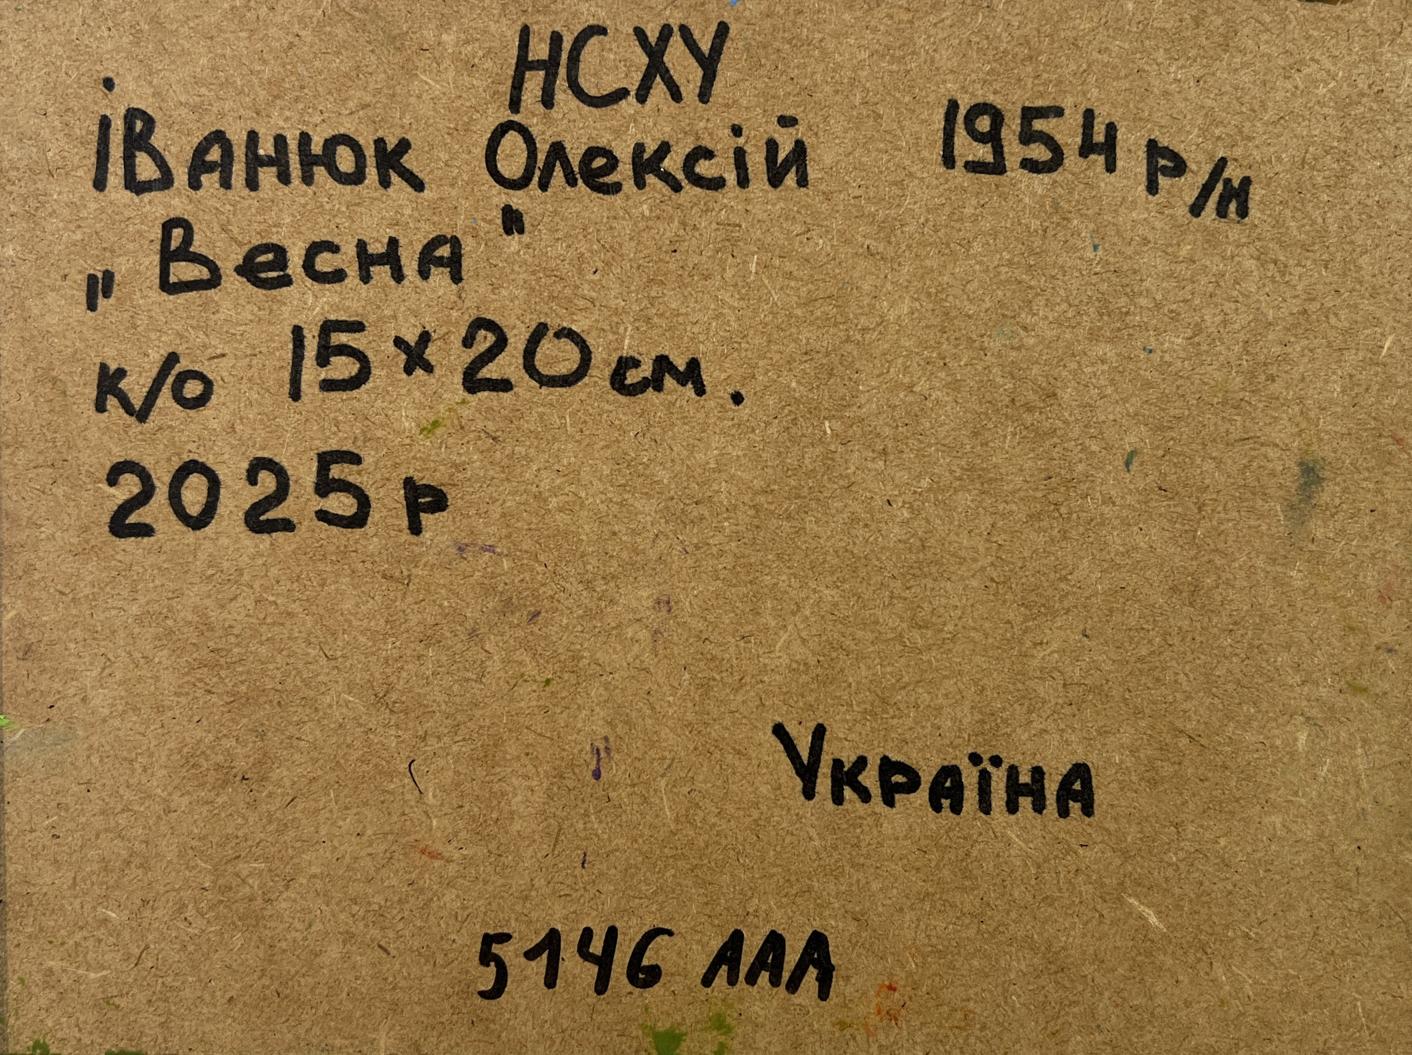 НСХУ
іванюк Олексій 1954 р/н
„Весна"
к/о 15×20 см.
2025 р
Україна
5146 ААА